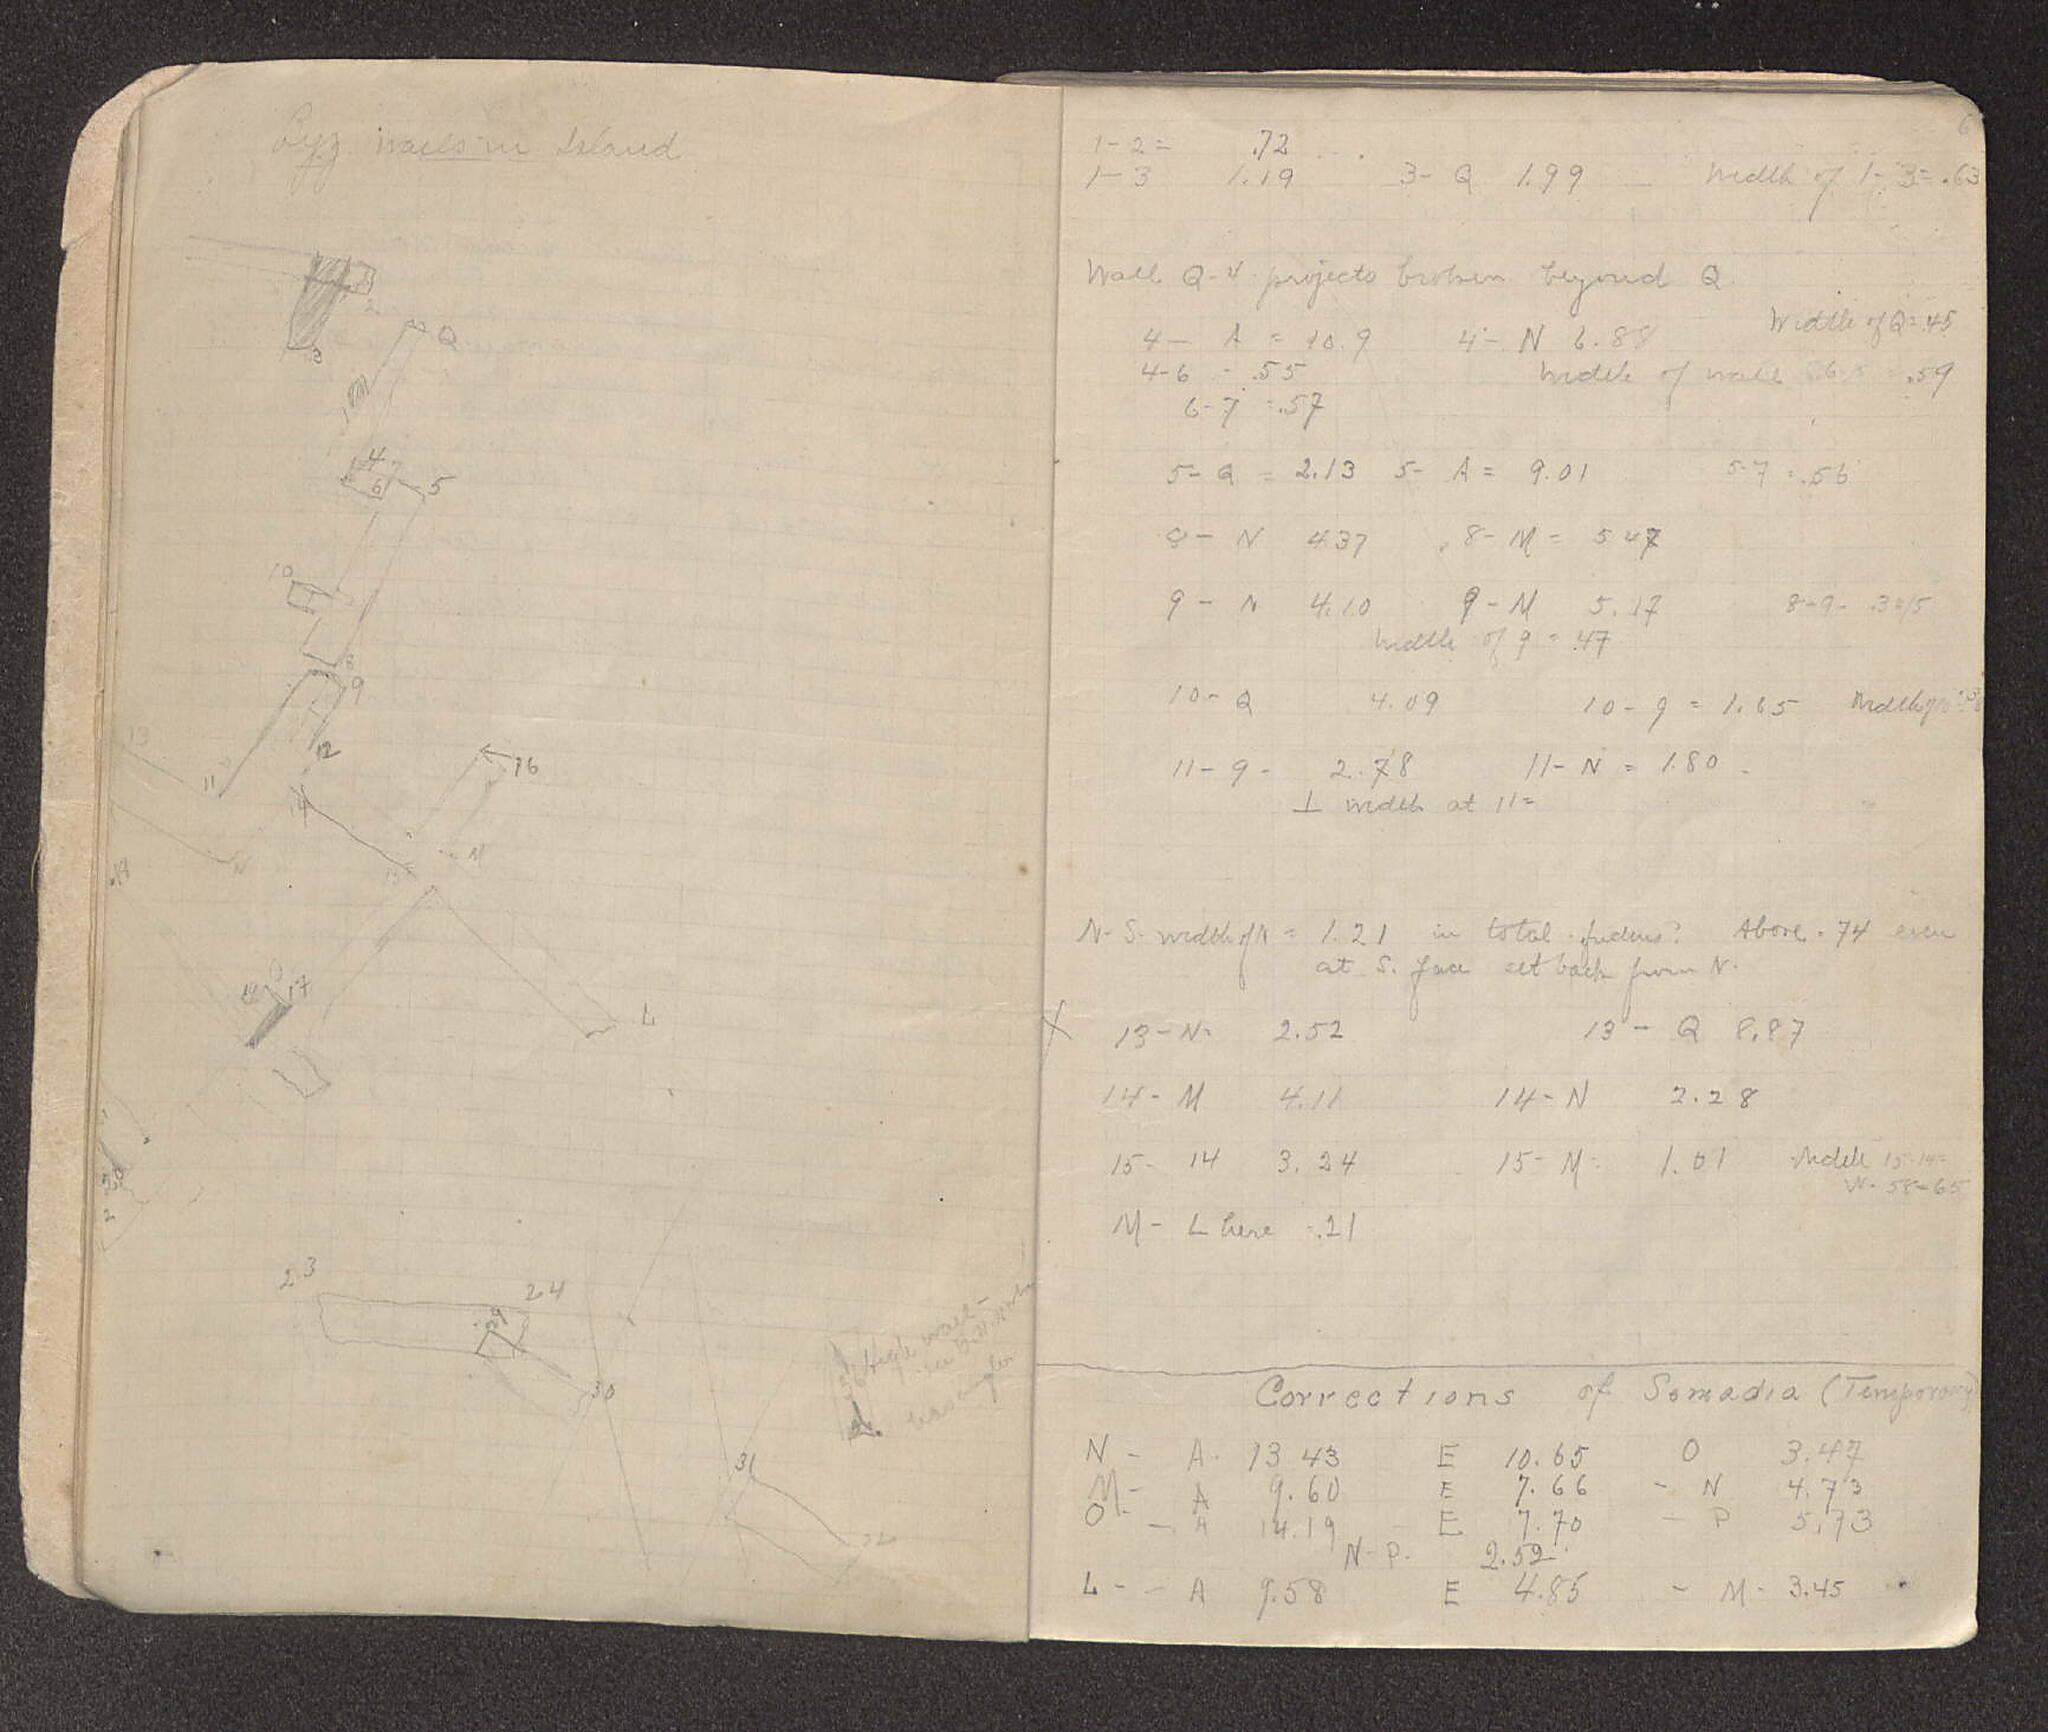 Byz. walls in Island
2
3
Q
4
6
5
10
8
9
13
12
11
16
14
M
N
15
18
17
L
23
24
29
30
High wall
31
32
6
1-2 = .72
1-3 1.19 3- Q 1.99 Width of 1-3 = .63
Wall Q-4 projects broken beyond Q
Width of Q = .45
4- A = 10.9 4- N 6.88
4-6 = .55 Width of wall .59
6-7 = .57
5- Q = 2.13 5- A = 9.01 5-7 = .56
8- N 4.37 8- M = 5.47
9- N 4.10 9- M 5.17 8-9-
Width of 9 = .47
10- Q 4.09 10-9 = 1.65
11-9- 2.78 11- N = 1.80 -
⊥ width at 11 =
N-S. width of N = 1.21 in total Above .74 even
at S. face set back from N.
X 13- N- 2.52 13- Q 8.87
14- M 4.11 14- N 2.28
15- 14 3.24 15- M- 1.01 Width 15-14=
M- L here = .21
Corrections of Somadia (Temporary)
N - A. 13 43 E 10.65 O 3.47
M - A 9.60 E 7.66 - N 4.73
O - - A 14.19 - E 7.70 - P 5.73
N-P. 2.52
L - - A 9.58 E 4.85 - M- 3.45